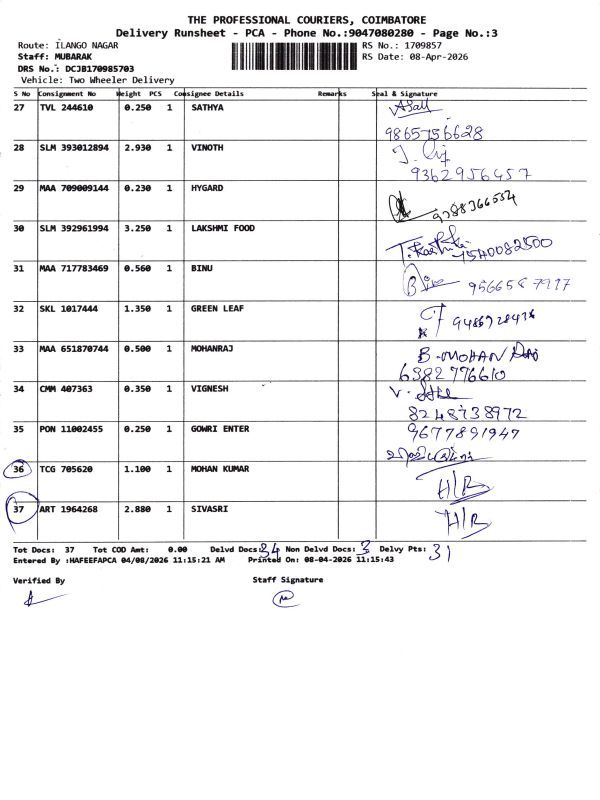 THE PROFESSIONAL COURIERS, COIMBATORE
Delivery Runsheet - PCA - Phone No.:9047080280 - Page No.:3
Route: ILANGO NAGAR RS No.: 1709857
Staff: MUBARAK RS Date: 08-Apr-2026
DRS No.: DCJB170985703
Vehicle: Two Wheeler Delivery
S No Consignment No Weight PCS Consignee Details Remarks Seal & Signature
27 TVL 244610 0.250 1 SATHYA
9865756628
28 SLM 393012894 2.930 1 VINOTH
9362956457
29 MAA 709009144 0.230 1 HYGARD
9788366554
30 SLM 392961994 3.250 1 LAKSHMI FOOD
7540082500
31 MAA 717783469 0.560 1 BINU
9566587977
32 SKL 1017444 1.350 1 GREEN LEAF
33 MAA 651870744 0.500 1 MOHANRAJ B. MOHAN
6382776610
34 CMM 407363 0.350 1 VIGNESH
8248738972
35 PON 11002455 0.250 1 GOWRI ENTER 9677891947
36 TCG 705620 1.100 1 MOHAN KUMAR H/R
37 ART 1964268 2.880 1 SIVASRI H/R
Tot Docs: 37 Tot COD Amt: 0.00 Delvd Docs: 34 Non Delvd Docs: 3 Delvy Pts: 31
Entered By :HAFEEFAPCA 04/08/2026 11:15:21 AM Printed On: 08-04-2026 11:15:43
Verified By Staff Signature